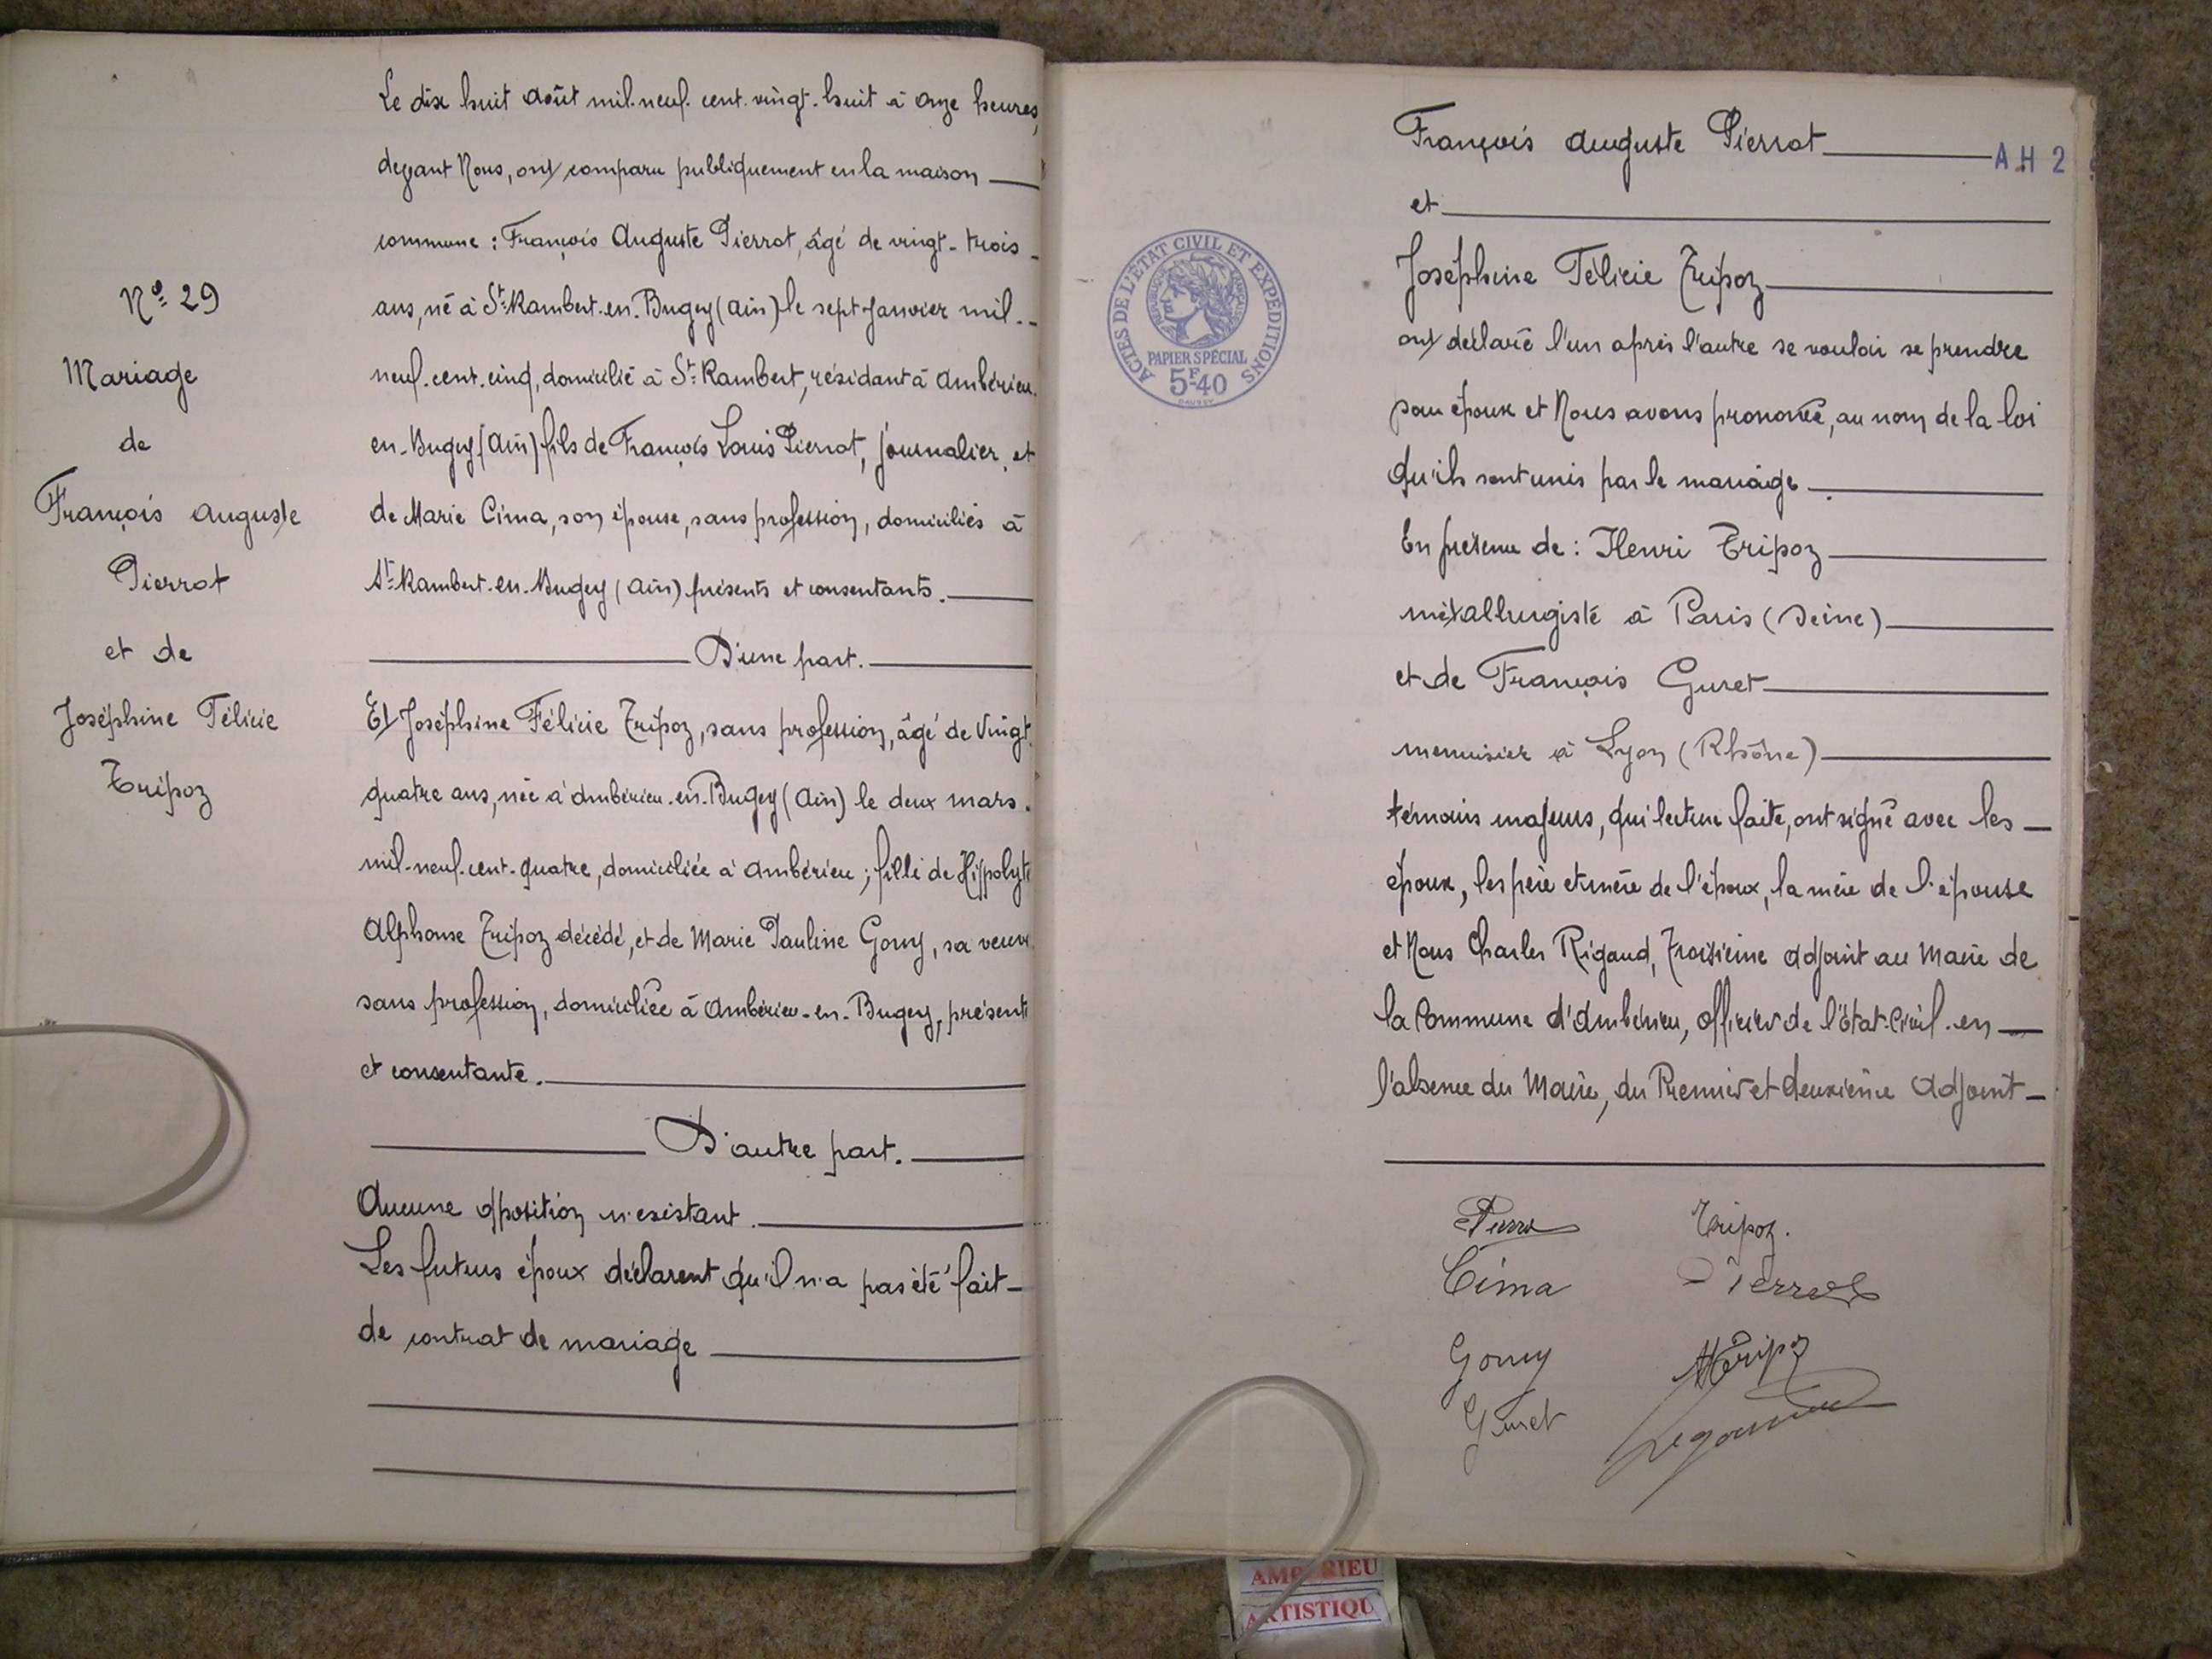 Le dix huit août mil. neuf. cent. vingt. huit à onze heures,
devant Nous, ont comparu publiquement en la maison
commune : François Auguste Pierrot, âgé de vingt-trois
ans, né à St. Rambert. en. Bugey (Ain) le sept Janvier mil.
neuf. cent. cinq, domicilié à St. Rambert, résidant à Ambérieu.
en-Bugey (Ain) fils de François Louis Pierrot, journalier, et
de Marie Cima, son épouse, sans profession, domiciliés à
St. Rambert. en. Bugey (Ain) présents et consentants.
D'une part.
Et Joséphine Félicie Tripoz, sans profession, âgé de Vingt.
quatre ans, née à Ambérieu. en. Bugey (Ain) le deux mars.
mil-neuf. cent. quatre, domiciliée à Ambérieu ; fille de Hippolyte
Alphonse Tripoz décédé, et de Marie Pauline Gouy, sa veuve
sans profession, domiciliée à Ambérieu-en-Bugey, présente
et consentante.
D'autre part.
Aucune opposition n'existant.
Les futurs époux déclarent qu'il n'a pas été fait
de contrat de mariage
No 29
Mariage
de
François Auguste
Pierrot
et de
Joséphine Félicie
Tripoz
François Auguste Pierrot
AH 2
et
Joséphine Félicie Tripoz
ont déclaré l'un après l'autre se vouloir se prendre
pour époux et Nous avons prononcé, au nom de la loi
qu'ils sont unis par le mariage
En présence de : Henri Tripoz
métallurgiste à Paris (Seine)
et de François Guret
menuisier à Lyon (Rhône)
témoins majeurs, qui lecture faite, ont signé avec les
époux, les père et mère de l'époux, la mère de l'épouse
et Nous Charles Rigaud, Troisième adjoint au Maire de
la Commune d'Ambérieu, officier de l'État-Civil. en
l'absence du Maire, du Premier et deuxième Adjoint
ACTES DE L'ÉTAT CIVIL ET EXPÉDITIONS
RÉPUBLIQUE FRANÇAISE
PAPIER SPÉCIAL
5F40
Tripoz.
Cima
Gouy
HTripoz
Guret
AMBERIEU
ARTISTIQU